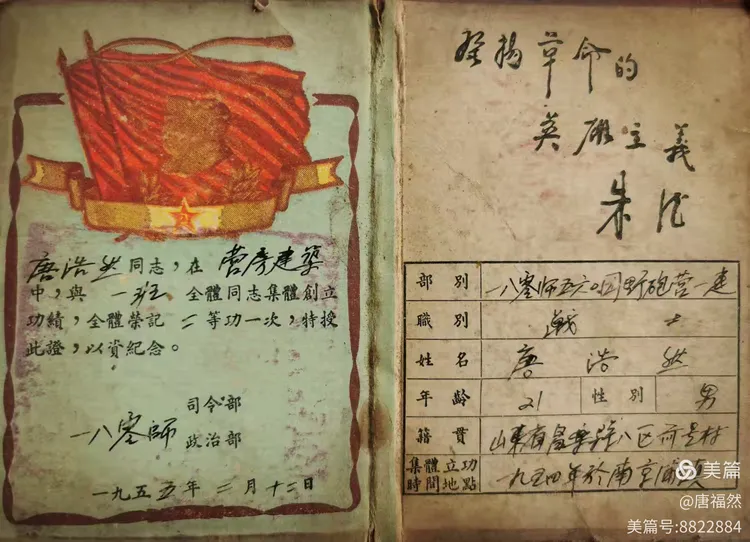 唐浩然同志，在營房建築
中，與一班全體同志集體創立
功績，全體榮記二等功一次，特授
此證，以資紀念。
司令部
一八零師
政治部
一九五五年二月十二日
發揚革命的
英雄主義
朱德
部別 一八零师五六〇团野砲营一連
職別 戰士
姓名 唐浩然
年齡 21 性別 男
籍貫 山東省昌樂縣八区河?村
集體立功時間地點 一九五四年於南京
美篇
@唐福然
美篇号:8822884